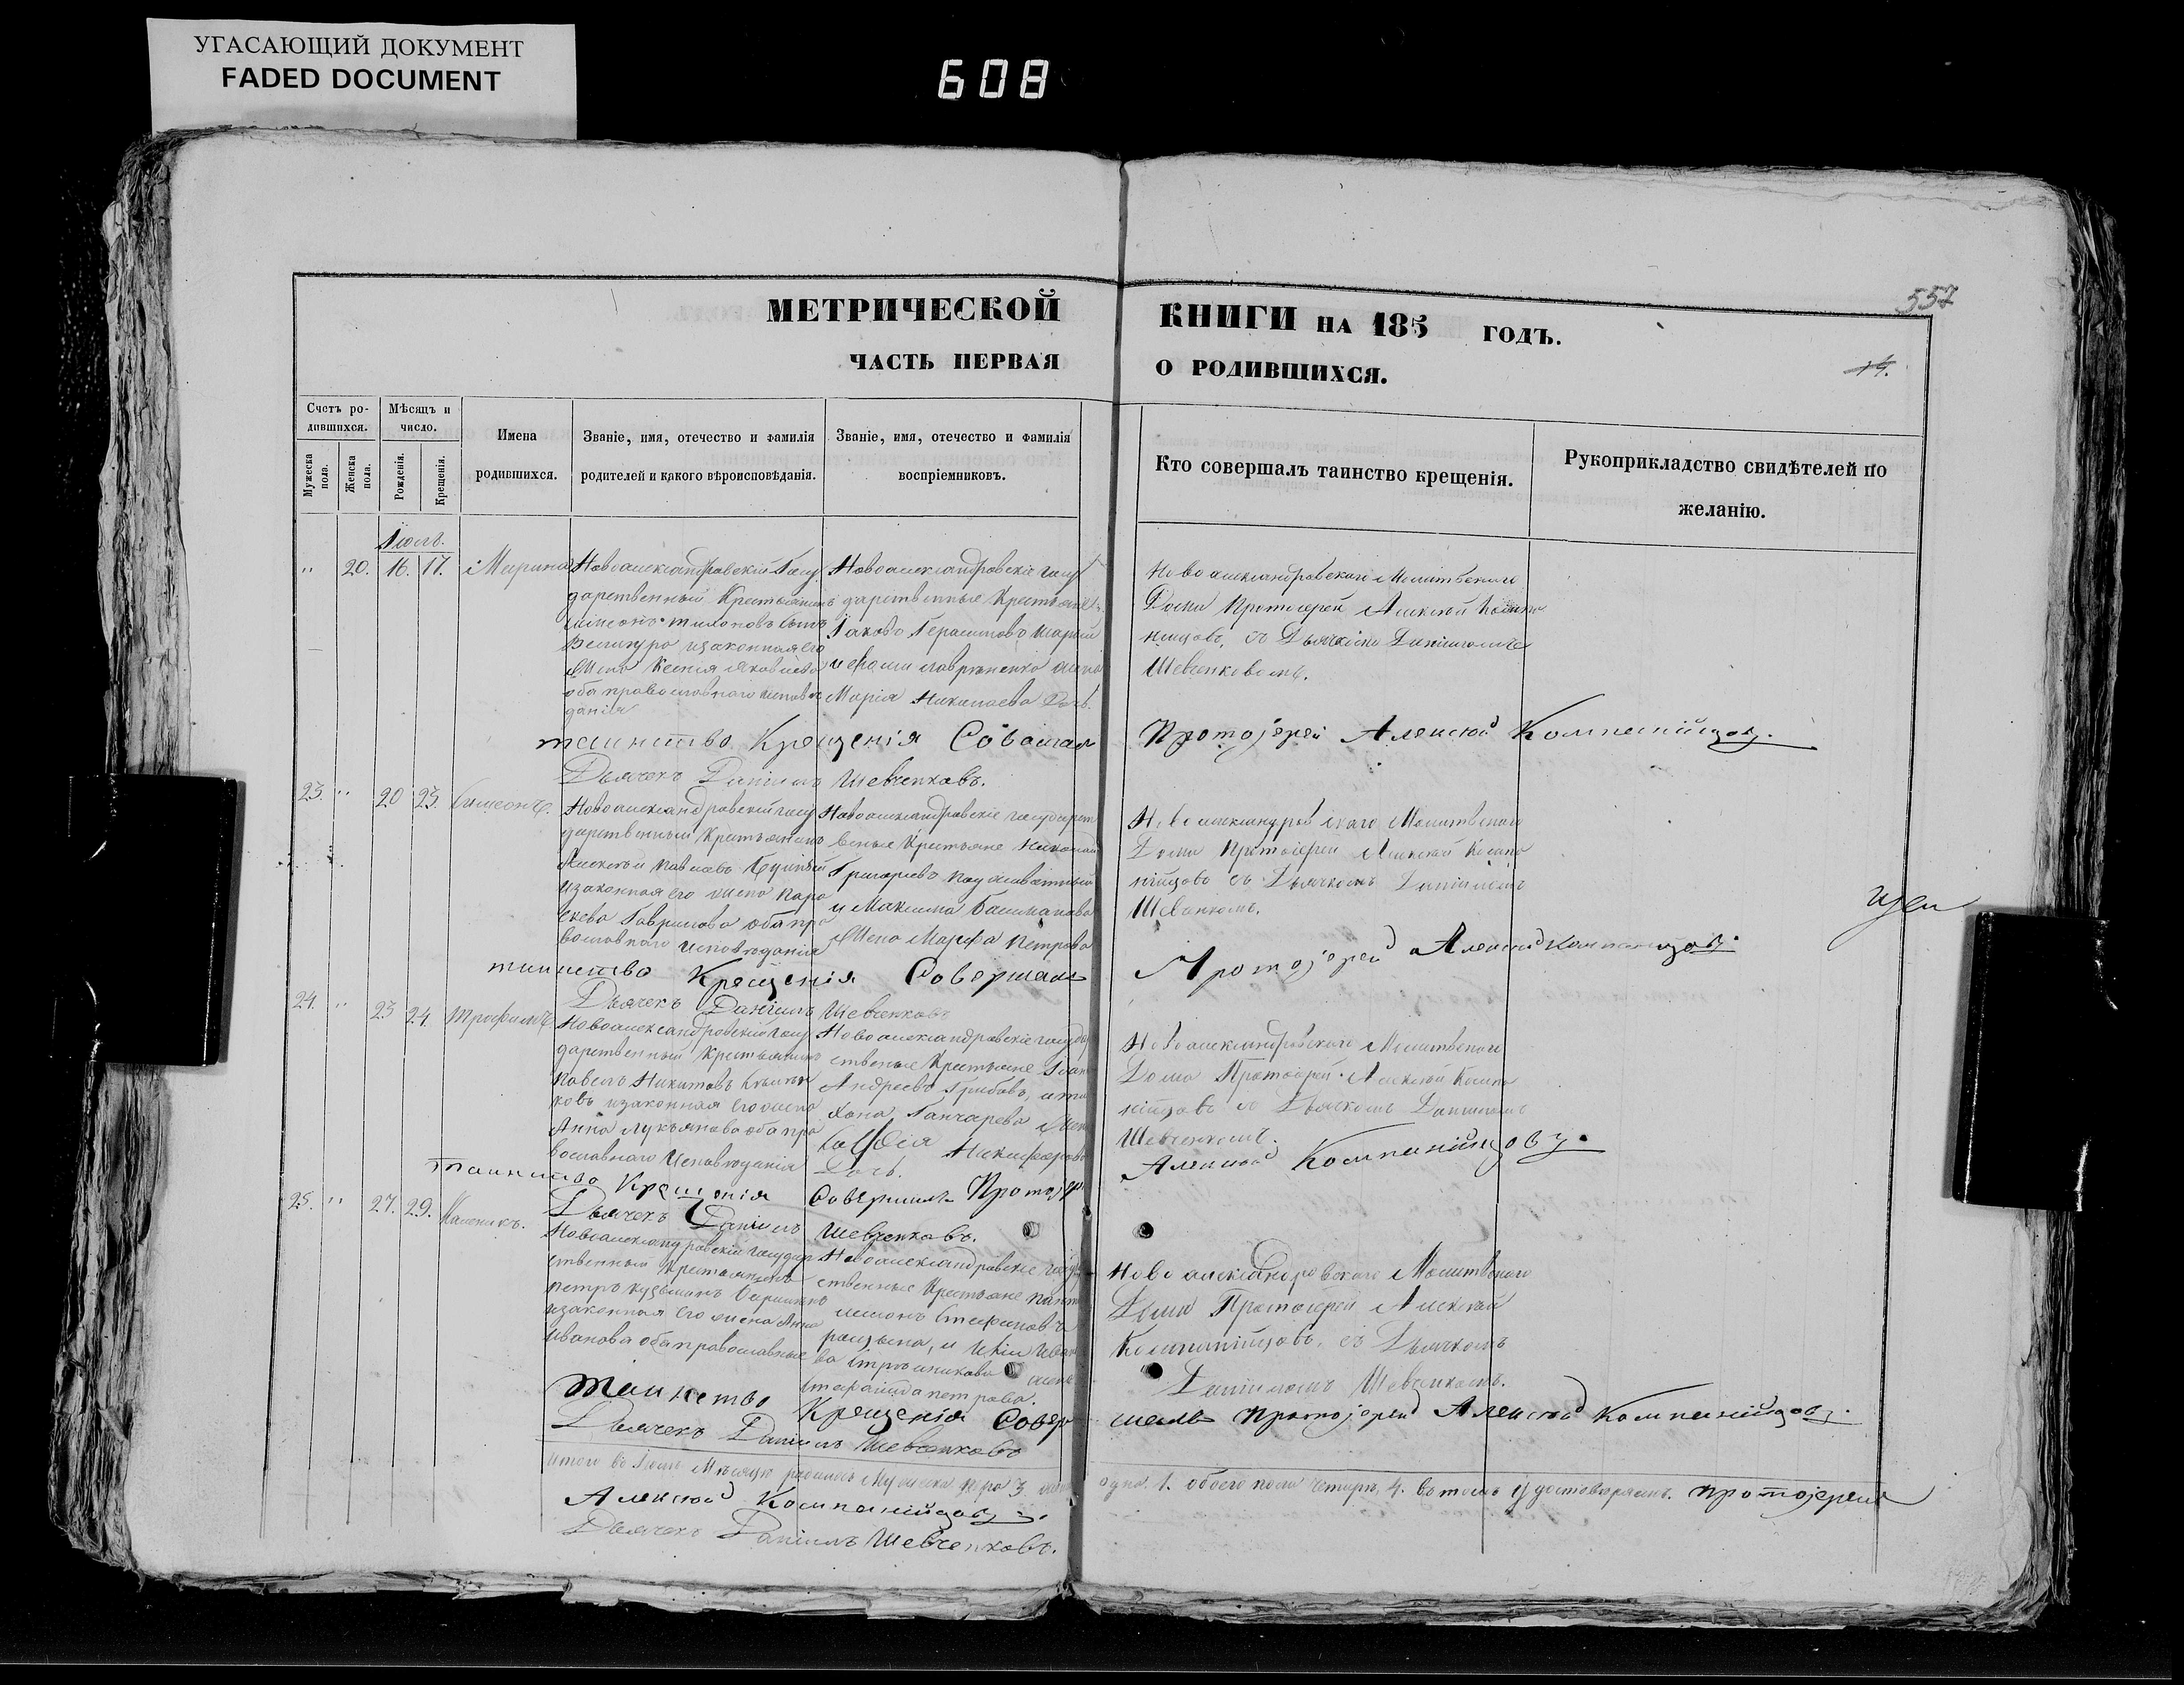 УГАСАЮЩИЙ ДОКУМЕНТ
FADED DOCUMENT
608
557
МЕТРИЧЕСКОЙ КНИГИ НА 185 ГОДЪ.
ЧАСТЬ ПЕРВАЯ О РОДИВШИХСЯ.
14.
Счетъ ро-
дившихся.
Мужеска пола.
Женска пола.
Мѣсяцъ и
число.
Рожденія.
Крещенія.
Имена
родившихся.
Званіе, имя, отечество и фамилія
родителей и какого вѣроисповѣданія.
Званіе, имя, отечество и фамилія
воспріемниковъ.
Кто совершалъ таинство крещенія.
Рукоприкладство свидѣтелей по
желанію.
Іюль.
" 20. 16. 17. Марина
Новоалександровскій Госу
дарственный Крестьянинъ
Симеонъ Тихоновъ сынъ
изаконная его
жена Ксенія Яковлева
оба православнаго исповѣ
данія
Новоалександровскіе Госу
дарственные Крестьяне
Іаковъ Герасимовъ
Марія Николаева Дочь.
Новоалександровскаго Молитвенаго
Дома Протоіерей Алексѣй Компа
нійцовъ, съ Дьячкомъ Даніиломъ
Шевченковомъ.
таинство Крещенія Совѣшал Протоjерей Алексѣй Компанійцовъ.
Дьячекъ Даніилъ Шевченковъ.
23. " 20 23. Симеонъ.
Новоалександровскій госу
дарственный Крестьянинъ
Алексѣй Павловъ
изаконная его жена Пара
скева Гаврилова оба пра
вославнаго исповѣданія
Новоалександровскіе государст
веные Крестьяне Николай
Григорьевъ
и Максима Башмакова
Жена Марфа Петрова
Новоалександровскаго Молитвенаго
Дома Протоіерей Алексѣй Компа
нійцовъ съ Дьячкомъ Даніиломъ
Шевченкомъ.
таинство Крещенія Совершалъ Протоjерей Алексѣй Компанійцовъ.
Дьячекъ Даніилъ Шевченковъ
24. " 23 24. Трофимъ
Новоалександровскій госу
дарственный Крестьянинъ
Павелъ Никитовъ
ковъ изаконная его жена
Анна Лукьянова оба пра
вославнаго Исповѣданія
Новоалександровскіе государ
ственые Крестьяне Іоан
Андреевъ Грибовъ, и Ти
хона Ганчарева
Софія Никифорова
Дочь.
Новоалександровскаго Молитвенаго
Дома Протоіерей Алексѣй Компа
нійцовъ съ Дьячкомъ Даніиломъ
Шевченкомъ.
таинство Крещенія Совершилъ Протоjер Алексѣй Компанійцовъ.
Дьячекъ Даніилъ Шевченковъ.
25. " 27. 29. Каленикъ.
Новоалександровскій государ
ственный Крестьянинъ
Петръ Кузьминъ
изаконная его жена Анна
Иванова оба православные
Новоалександровскіе госудр
ственные Крестьяне Пант
илимонъ Стефановъ
Стефанида Петрова.
Новоалександровскаго Молитвенаго
Дома Протоіерей Алексѣй
Компанійцовъ, съ Дьячкомъ
Даніиломъ Шевченкомъ.
Таинство Крещенія Совер шалъ Протоjерей Алексѣй Компанійцовъ.
Дьячекъ Даніилъ Шевченковъ
Итого въ Іюлѣ Мѣсяцѣ родилось Мужеска пола 3 одна 1. обоего пола Четыре 4. Протоjерей
Алексѣй Компанійцовъ.
Дьячекъ Даніилъ Шевченковъ.